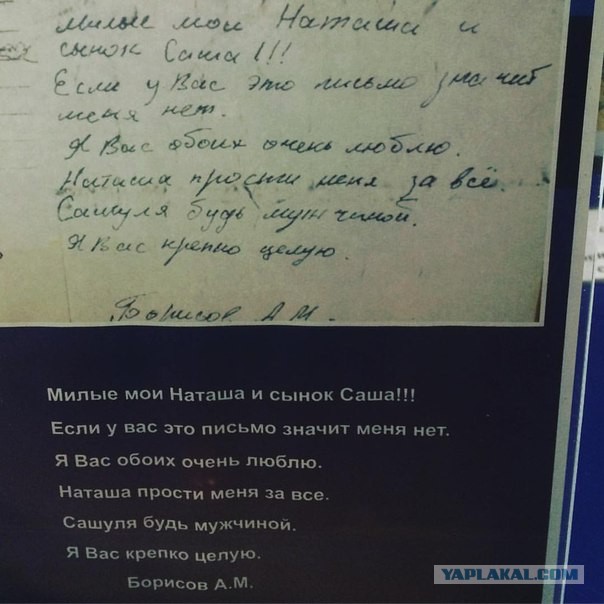 Милые мои Наташа и
сынок Саша!!!
Если у Вас это письмо значит
меня нет.
Я Вас обоих очень люблю.
Наташа прости меня за всё.
Сашуля будь мужчиной.
Я Вас крепко целую.
Борисов А.М.
Милые мои Наташа и сынок Саша!!!
Если у вас это письмо значит меня нет.
Я Вас обоих очень люблю.
Наташа прости меня за все.
Сашуля будь мужчиной.
Я Вас крепко целую.
Борисов А.М.
YAPLAKAL.COM